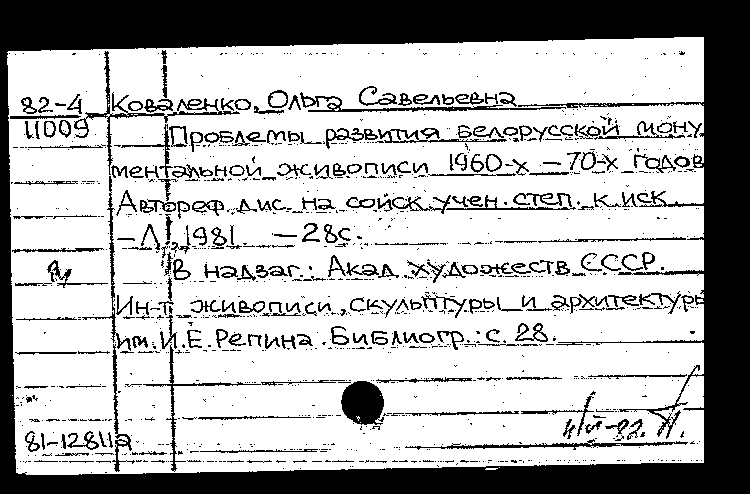 82-4 Коваленко, Ольга Савельевна
11009 Проблемы развития белорусской мону
ментальной живописи 1960-х – 70-х годов
Автореф. дис. на соиск. учен. степ. к. иск.
– Л., 1981 – 28с.
В надзаг.: Акад. художеств СССР.
Ин-т живописи, скульптуры и архитектуры
им. И.Е. Репина. Библиогр.: с. 28.
81-12811а